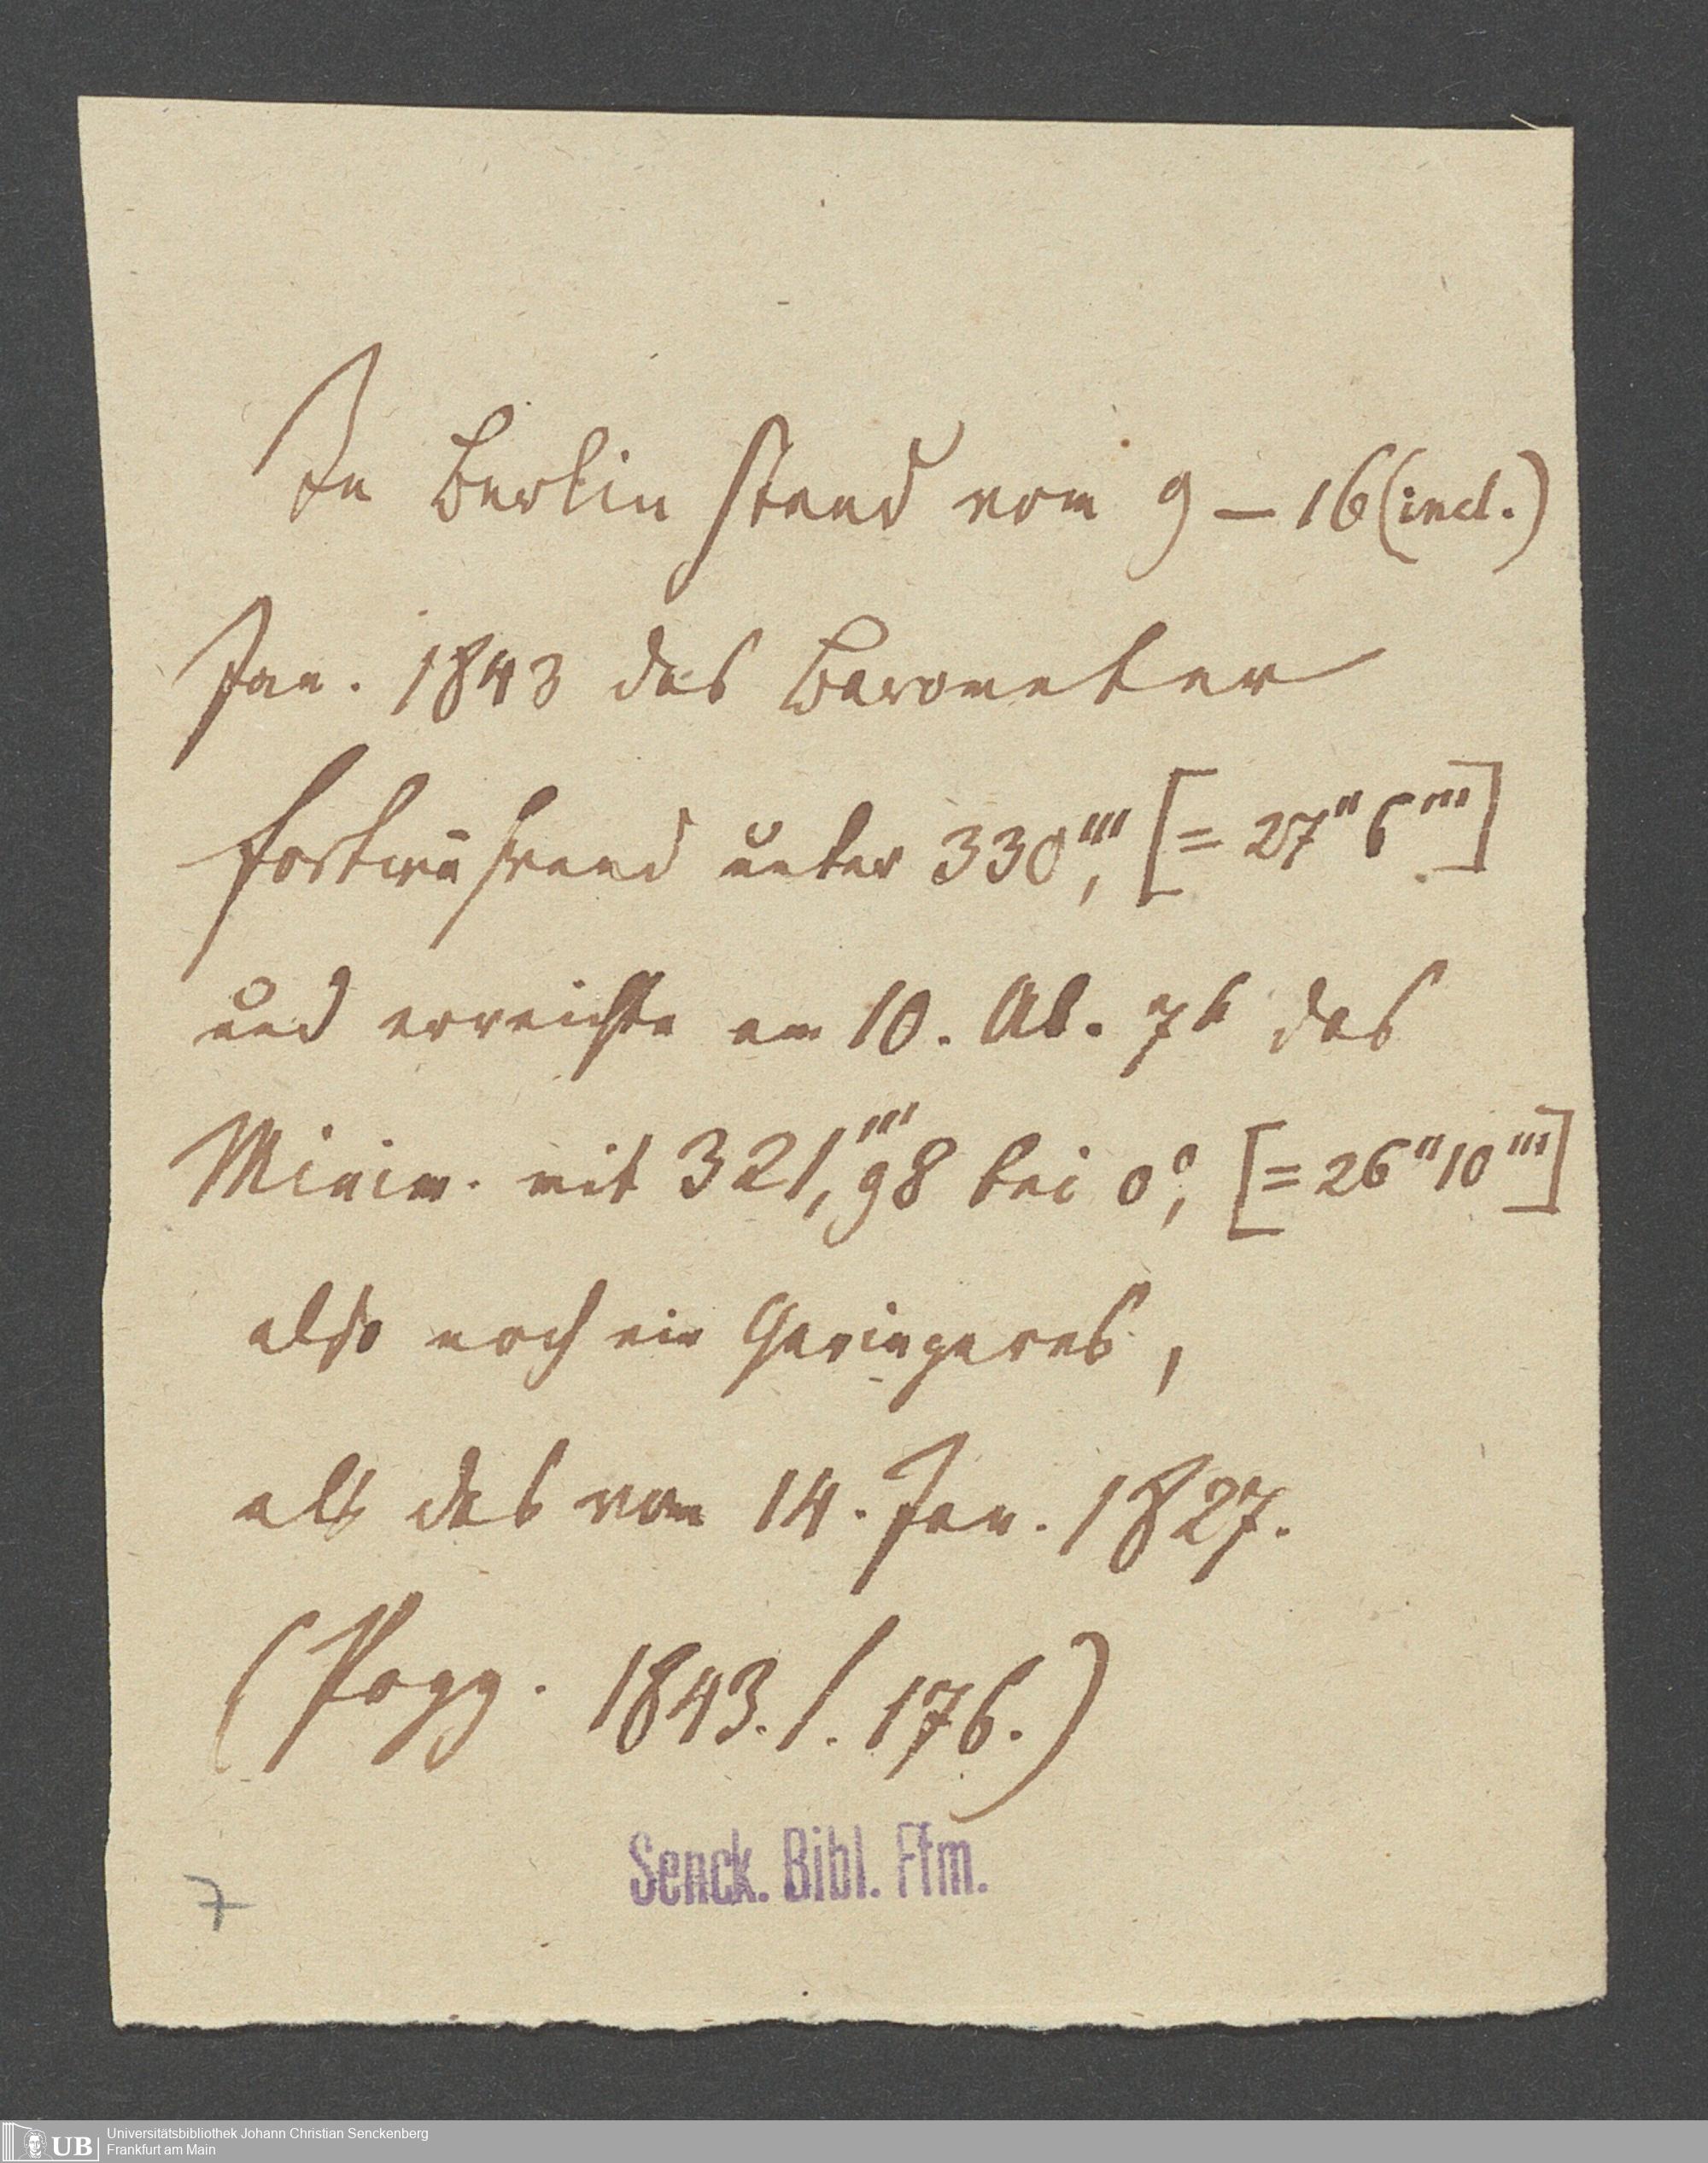 In Berlin stand vom 9 – 16 (incl.)
Jan. 1843 das Barometer
fortwährend unter 330''', [= 27'' 6''']
und erreichte am 10. Ab. 7h das
Minim. mit 321,'''98 bei 0°, [= 26'' 10''']
also noch ein Geringeres,
als das vom 14. Jan. 1827.
(Pogg. 1843. 1. 176.)
Senck. Bibl. Ffm.
7
UB Universitätsbibliothek Johann Christian Senckenberg
Frankfurt am Main